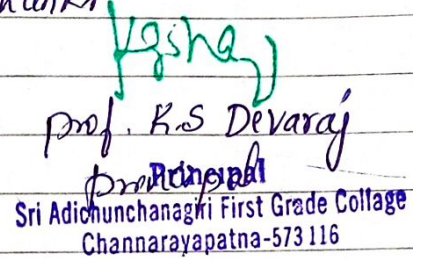 prof. K.S Devaraj
Principal
Sri Adichunchanagiri First Grade Collage
Channarayapatna-573116